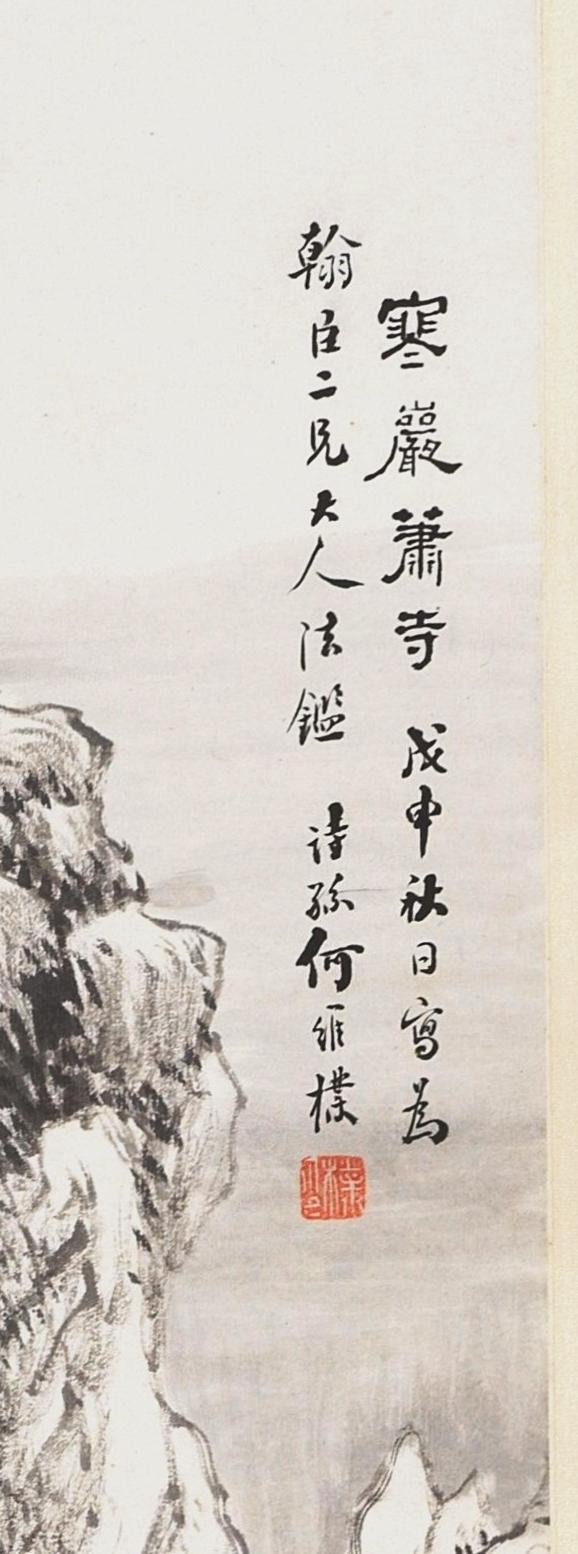 寒巖蕭寺 戊申秋日寫為
翰臣二兄大人法鑑 詩孫何維樸